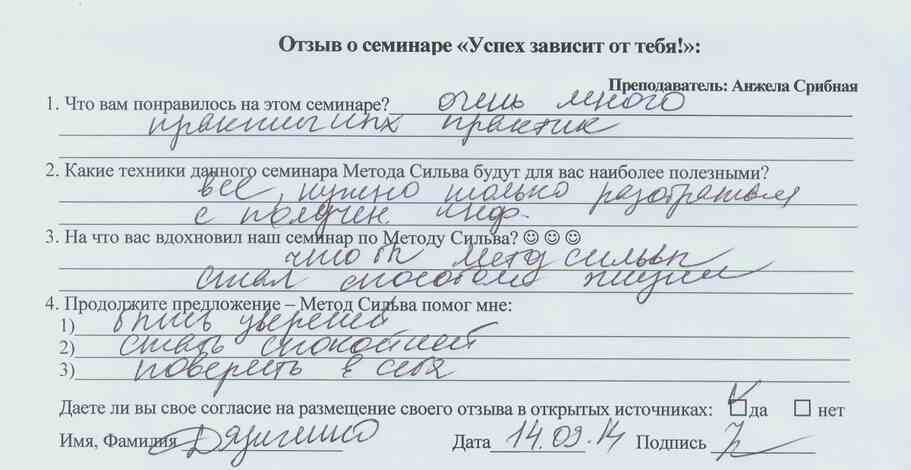 Отзыв о семинаре «Успех зависит от тебя!»:
Преподаватель: Анжела Срибная
1. Что вам понравилось на этом семинаре? очень много
практик
2. Какие техники данного семинара Метода Сильва будут для вас наиболее полезными?
все, нужно только разобраться
с получен. инф.
3. На что вас вдохновил наш семинар по Методу Сильва? ☺ ☺ ☺
чтобы метод сильвы
стал способом жизни
4. Продолжите предложение – Метод Сильва помог мне:
1) быть уверенней
2) стать спокойней
3) поверить в себя
Даете ли вы свое согласие на размещение своего отзыва в открытых источниках: да нет
Имя, Фамилия
Дата 14.09.14 Подпись